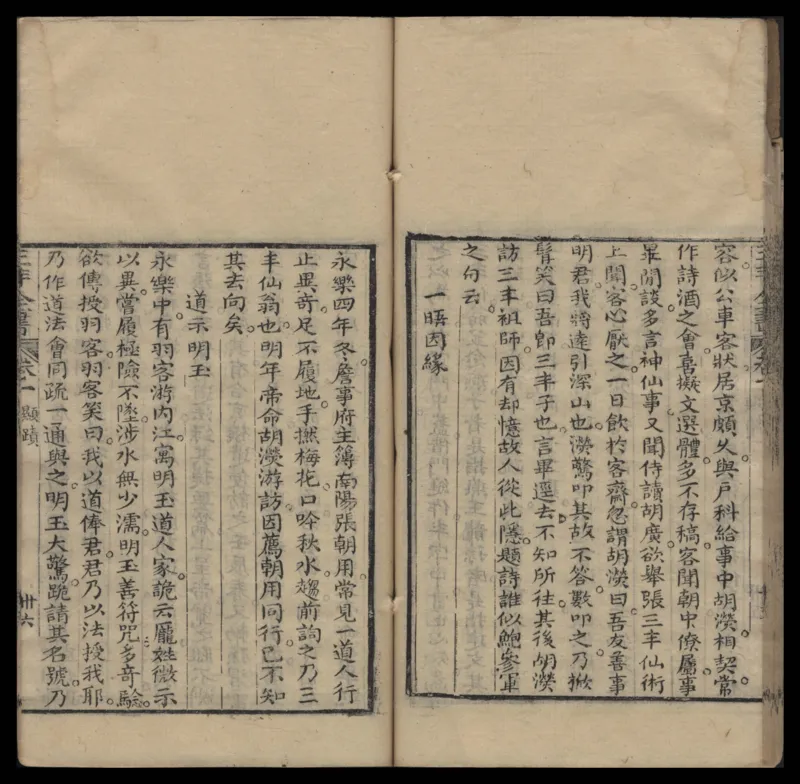 容似公車客狀居京頗久與戶科給事中胡濙相契常
作詩酒之會喜擬文選體多不存稿客聞朝中僚屬事
暴閒談多言神仙事又聞侍讀胡廣欲舉張三丰仙術
上聞客心厭之一日飲於客齋忽謂胡濙曰吾友善事
明君我將達引深山也濙驚叩其故不答數叩之乃掀
髯笑曰吾卽三丰子也言畢逕去不知所往其後胡濙
訪三丰祖師因有却憶故人從此隱題詩誰似鮑參軍
之句云
一晤因緣
永樂四年冬詹事府主簿南陽張朝用常見一道人行
止異奇足不履地手撚梅花口吟秋水趨前詢之乃三
丰仙翁也明年帝命胡濙游訪因薦朝用同行已不知
其去向矣
道示明玉
永樂中有羽客游內江寓明玉道人家詭云龐姓微示
以異嘗履極險不墜涉水無少濡明玉善符咒多奇驗
欲傳授羽客羽客笑曰我以道俾君君乃以法授我耶
乃作道法會同疏一通與之明玉大驚跪請其名號乃
三丰全書 卷一 顯蹟 卅六